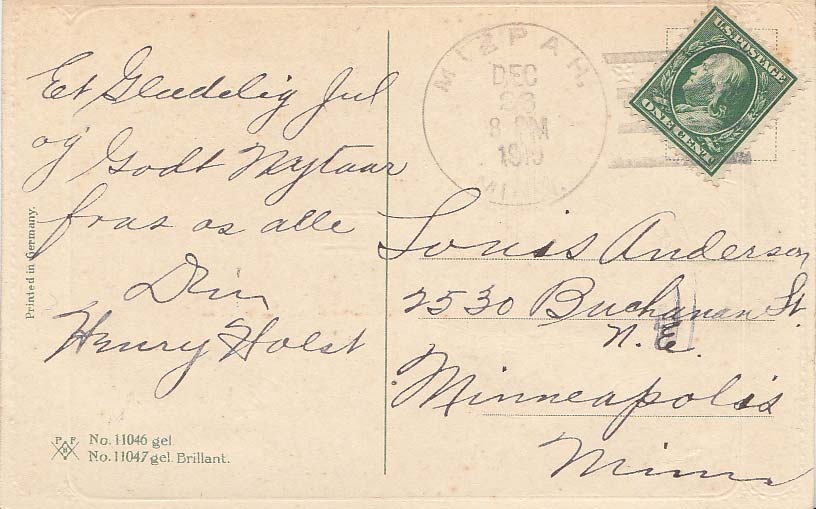 Et Gladelig Jul
og Godt Nytaar
fraa os alle
Din
Henry Holst
Printed in Germany.
P. F.
B
No. 11046 gel
No. 11047 gel. Brillant.
MIZPAH.
DEC
23
8 PM
MINN.
U.S. POSTAGE
ONE CENT
Louis Anderson
2530 Buchanan St.
N. E.
Minneapolis
Minn